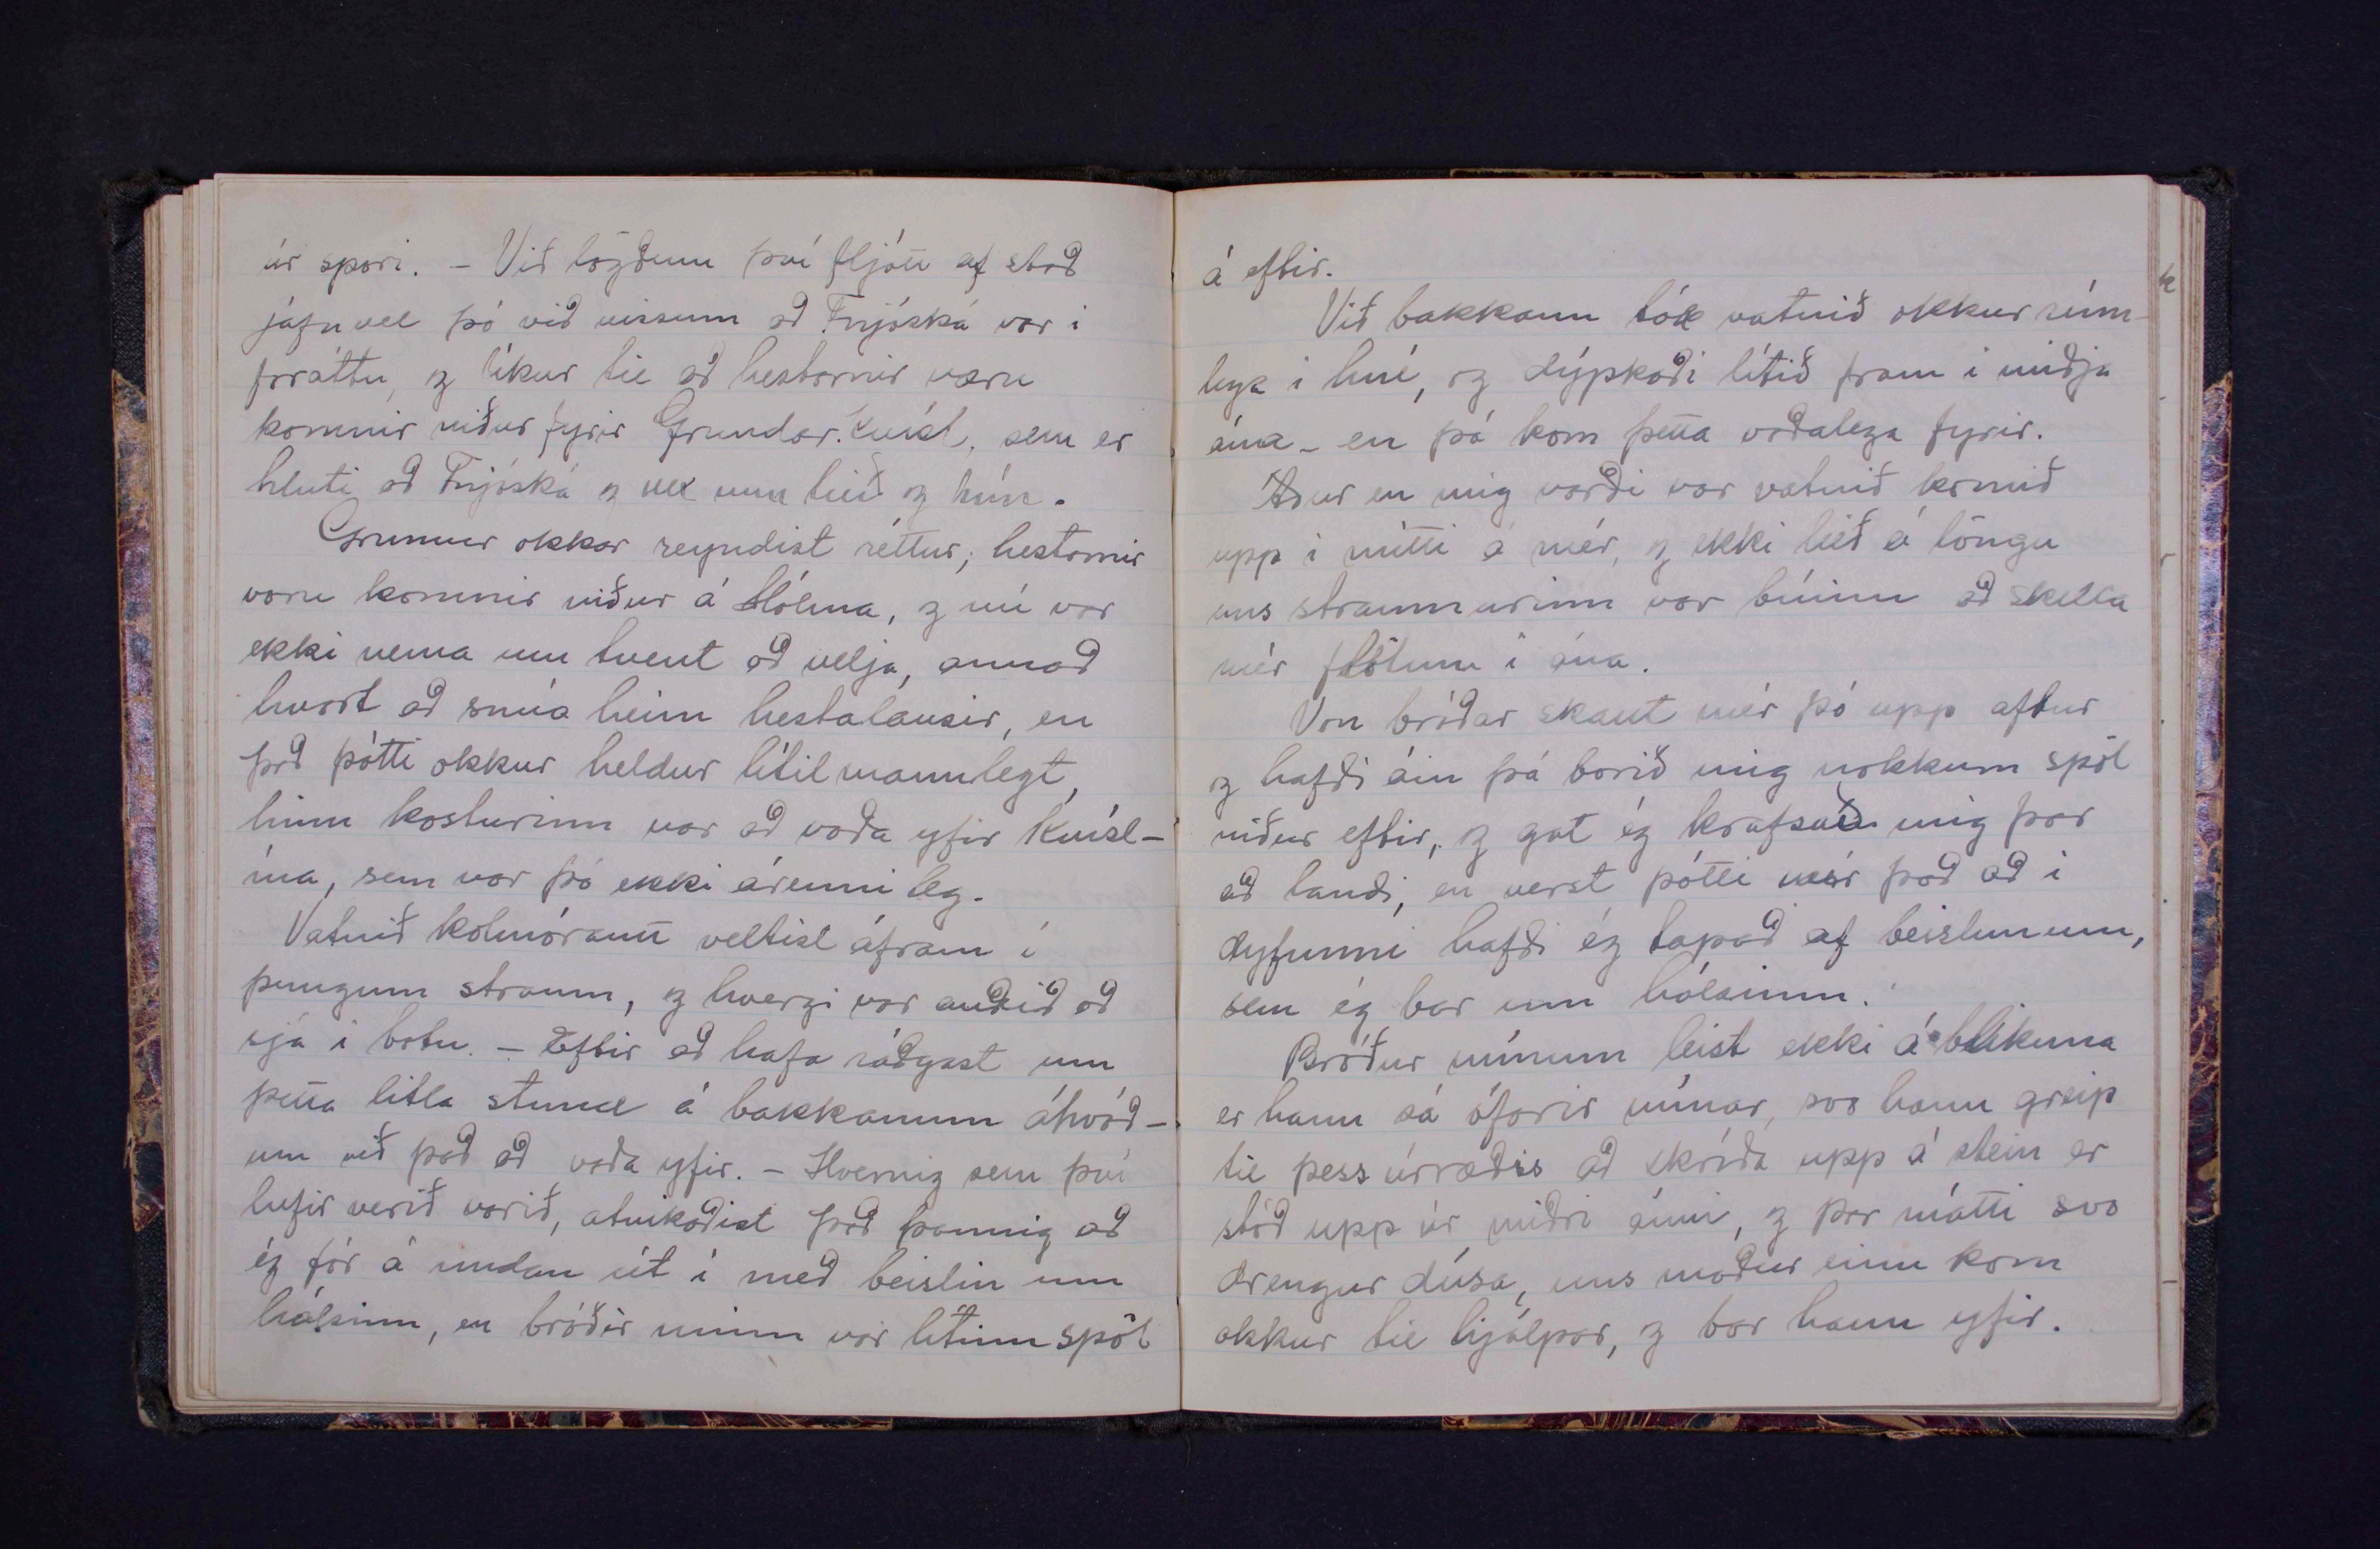 úr spori. - Við lögðum því fljótt af stað
jafnvel þó við vissum að Fnjóská var í
foráttu, og líkur til að hestarnir væru
komnir niður fyrir Grundar-kvísl, sem er
hluti að Fnjóská og vex um leið og hún.
Grunur okkar reyndist réttur; hestarnir
voru komnir niður á Hólma, og nú var
ekki nema um tvent að velja, annað
hvort að snúa heim hestalausir, en
það þótti okkur heldur lítilmannlegt,
hinn kosturinn var að vaða yfir Kvísl-
ina, sem var þó ekki árennileg.
Vatnið kolmórautt veltist áfram í
þungum straum, og hvergi var auðið að
sjá í botn. - Eftir að hafa ráðgast um
þetta litla stund á bakkanum áhvöð-
um við það að vaða yfir. - Hvernig sem því
hefir verið varið, atvikaðist það þannig að
ég fór á undan út í með beislin um
hálsinn, en bróðir minn var lítinn spöl
á eftir.
Við bakkann tók vatnið okkur rúm-
lega í hné, og dýpkaði lítið fram í miðja
ána - en þá kom þetta voðalega fyrir.
Áður en mig varði var vatnið komið
upp í mitti á mér, og ekki leið á löngu
uns straumurinn var búinn að skella
mér flötum í ána.
Von bráðar skaut mér þó upp aftur
og hafði áin þá borið mig nokkurn spöl
niður eftir, og gat ég krafsað mig þar
að landi, en verst þótti mér það að í
dýfunni hafði ég tapað af beislunum,
sem ég bar um hálsinn.
Bróður mínum leist ekki á blikuna
er hann sá ófarir mínar, svo hann greip
til þess úrræðis að skríða upp á stein er
stóð upp úr miðri ánni, og þar mátti svo
drengur dúsa, uns maður einn kom
okkur til hjálpar, og bar hann yfir.